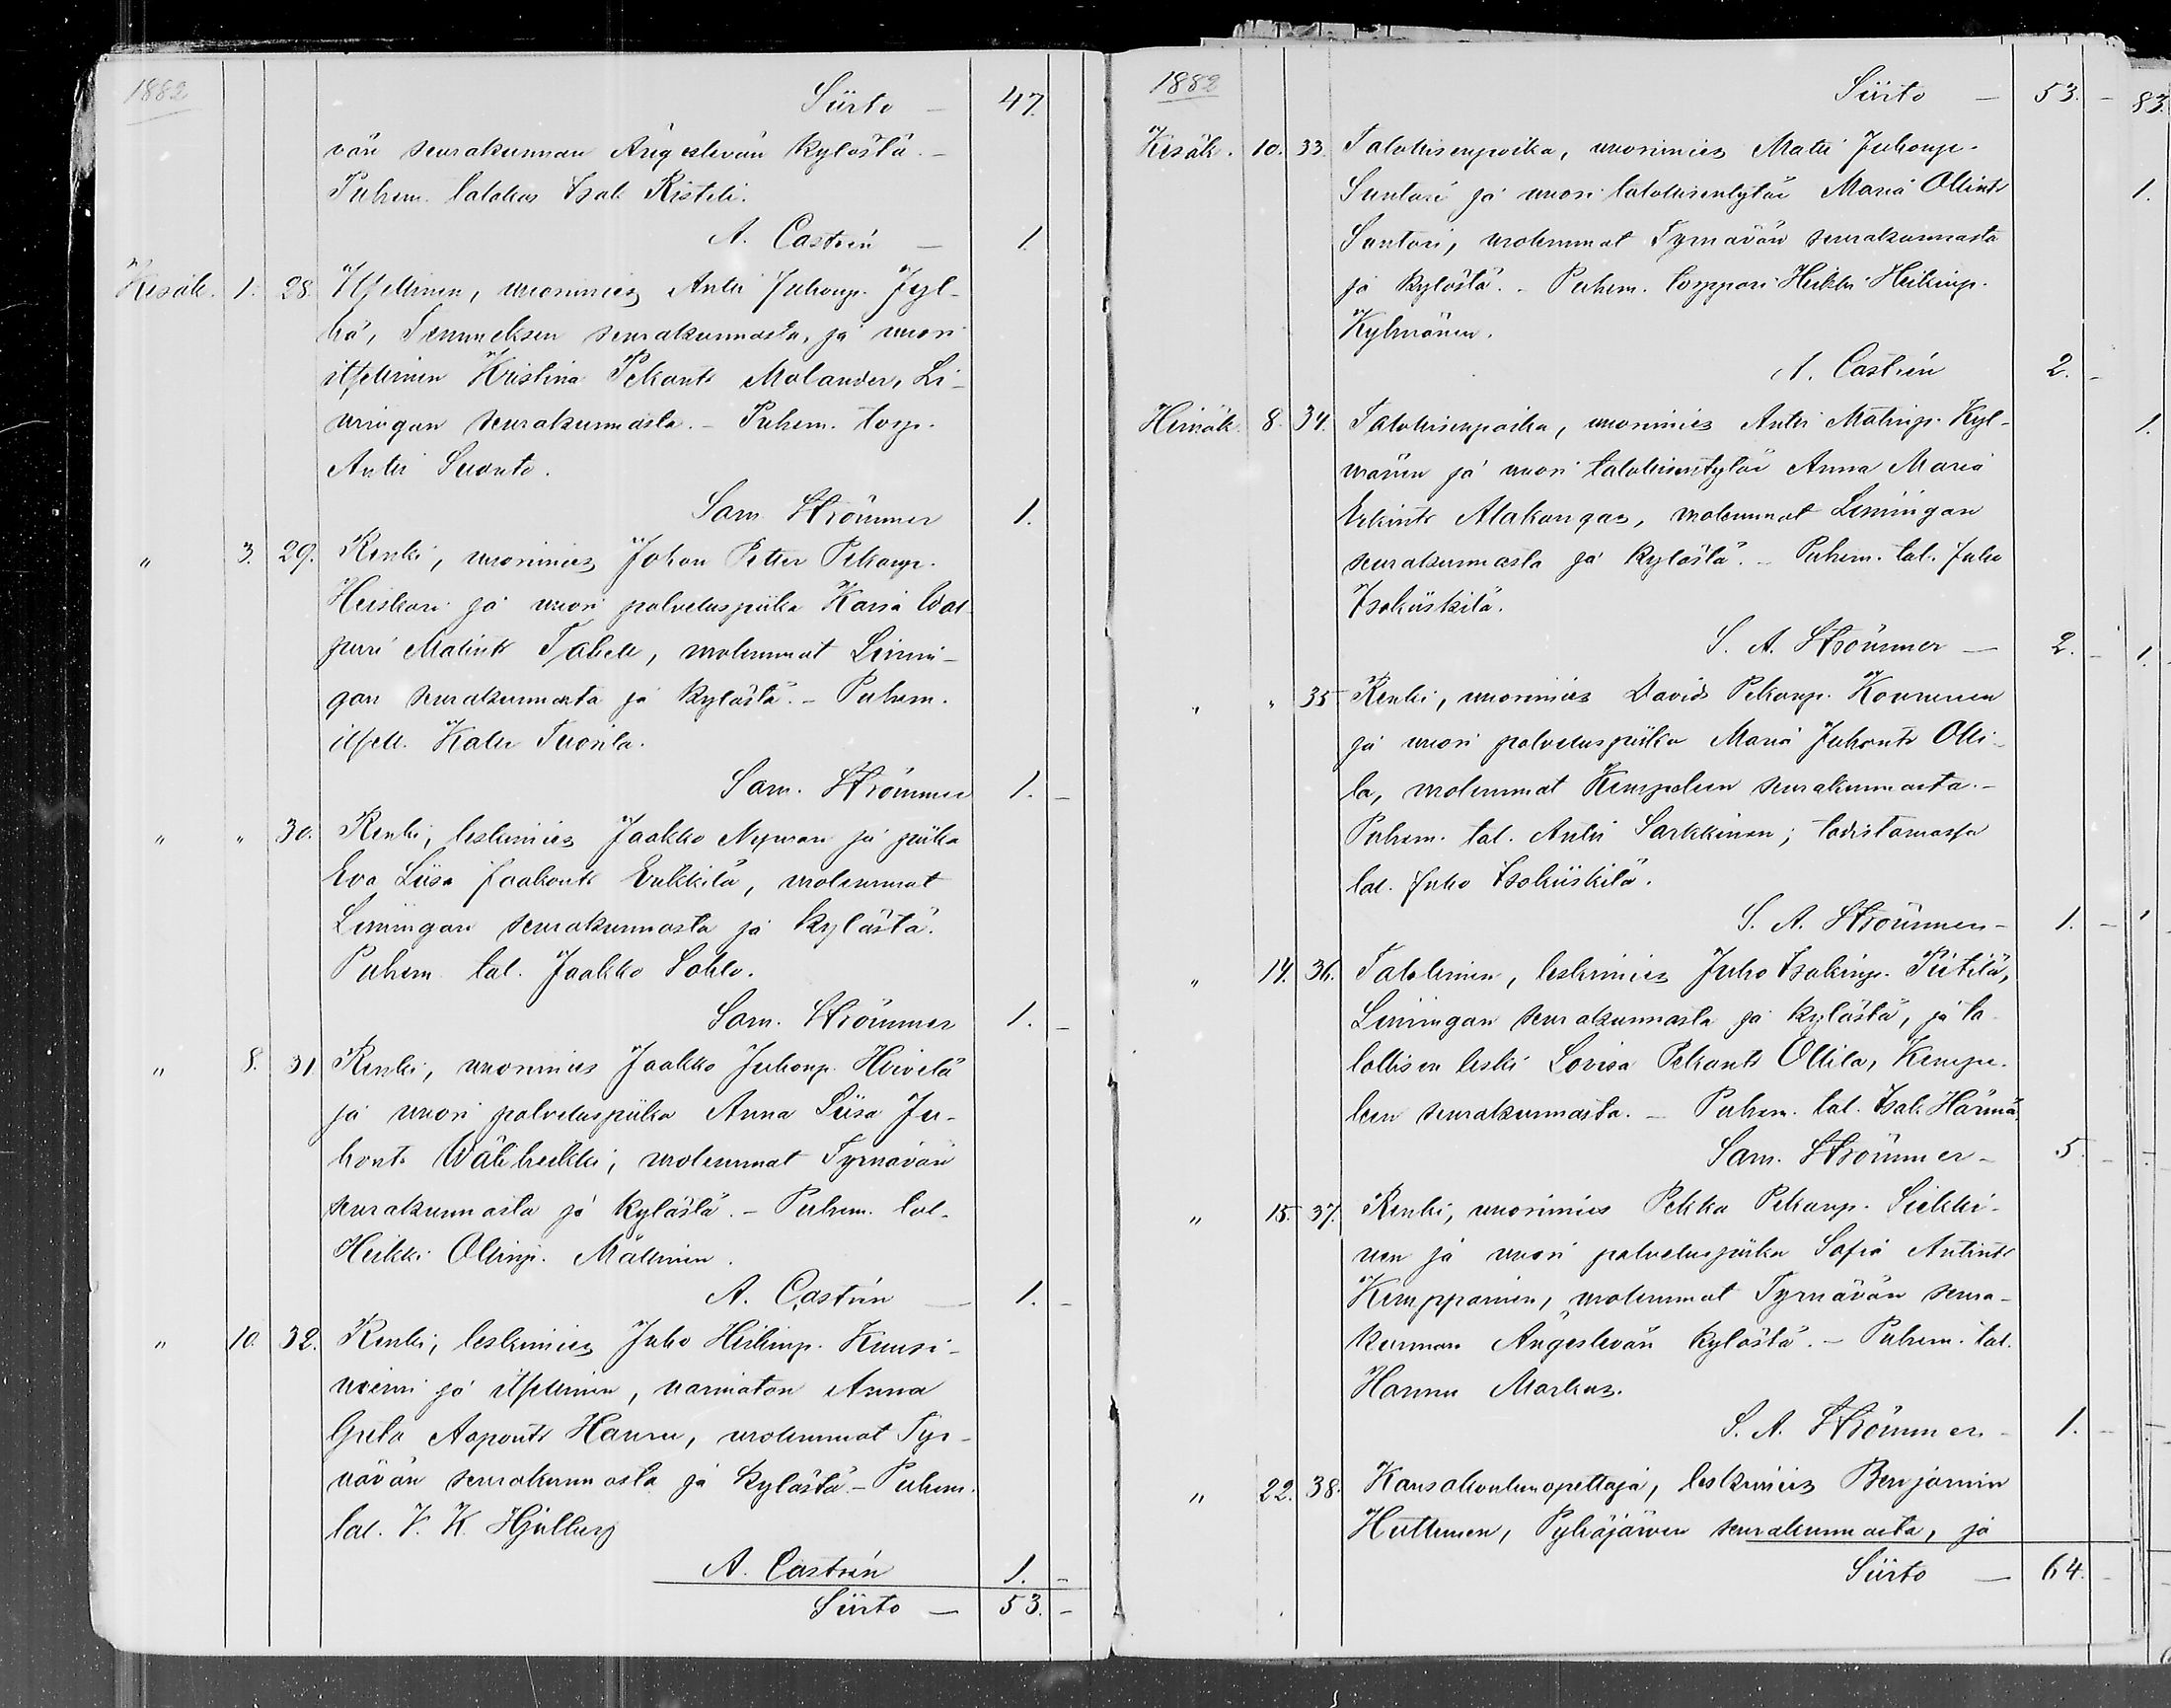 1882 Siirto — 47.
vän seurakunnan Ängeslevän kylästä. —
Puhem. talokas Isak Risteli.
A. Castrén — 1.
Kesäk. 1. 28. Itsellinen, nuorimies Antti Juhonp. Jyl-
hä, Temmeksen seurakunnasta, ja nuori
itsellinen Kristina Pekant. Molander, Li-
mingan seurakunnasta. — Puhem. torp.
Antti Suonto.
Sam. Strömmer 1.
" 3. 29. Renki, nuorimies Johan Petter Pekanp.
Heiskari ja nuori palveluspiika Karia Wal-
puri Matint. Tabell, molemmat Limin-
gan seurakunnasta ja kylästä. — Puhem.
itsell. Kalle Tuorila.
Sam. Strömmer 1. —
" " 30. Renki, leskimies Jaakko Nyman ja piika
Eva Liisa Jaakont. Erkkilä, molemmat
Limingan seurakunnasta ja kylästä.
Puhem. tal. Jaakko Sohlo.
Sam. Strömmer 1. —
" 8. 31. Renki, nuorimies Jaakko Juhonp. Hirvelä
ja nuori palveluspiika Anna Liisa Ju-
hont. Wäliheikki, molemmat Tyrnävän
seurakunnasta ja kylästä. — Puhem. tal.
Heikki Ollinp. Mällinen.
A. Castrén — 1. —
" 10. 32. Renki, leskimies Juho Heikinp. Kuusi-
niemi ja itsellinen, naimaton Anna
Greta Aapont. Hannu, molemmat Tyr-
nävän seurakunnasta ja kylästä. — Puhem.
tal. V. K. Hjällberg
A. Castrén 1. —
Siirto — 53. —
1882 Siirto — 53. — 83.
Kesäk. 10. 33. Talollisenpoika, nuorimies Matti Juhonp.
Suntari ja nuori talollisentytär Maria Ollint. 1.
Suntari, molemmat Tyrnävän seurakunnasta
ja kylästä. — Puhem. torppari Heikki Heikinp.
Kylmänen.
A. Castrén 2. —
Heinäk. 8. 34. Talollisenpoika, nuorimies Antti Matinp. Kyl- 1.
mänen ja nuori talollisentytär Anna Maria
Erkint. Alakangas, molemmat Limingan
seurakunnasta ja kylästä. — Puhem. tal. Juho
Isokiiskilä.
S. A. Strömmer — 2. — 1.
" " 35 Renki, nuorimies David Pekanp. Kornunen
ja nuori palveluspiika Maria Juhont. Olli-
la, molemmat Kempeleen seurakunnasta. —
Puhem. tal. Antti Sarkkinen; todistamassa
tal. Juho Isokiiskilä.
S. A. Strömmer — 1. — 1
" 14. 36. Talollinen, leskimies Juho Isakinp. Piitilä,
Limingan seurakunnasta ja kylästä, ja ta-
lollisen leski Lovisa Pekant. Ollila, Kempe-
leen seurakunnasta. — Puhem. tal. Isak Härmä.
Sam. Strömmer — 5 —
" 15. 37. Renki, nuorimies Pekka Pekanp. Siekki-
nen ja nuori palveluspiika Sofia Antint.
Kemppainen, molemmat Tyrnävän seura-
kunnan Ängeslevän kylästä. — Puhem. tal.
Hannu Markus.
S. A. Strömmer — 1. —
" 22. 38. Kansakoulunopettaja, leskimies Benjamin
Huttunen, Pyhäjärven seurakunnasta, ja
Siirto — 64. —